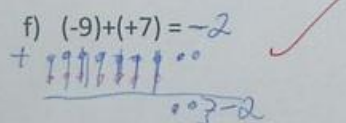 f) (-9)+(+7) = -2
+
-2